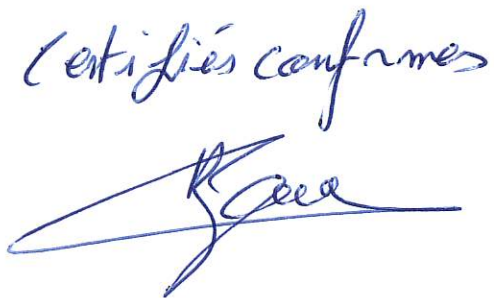 Certifiés conformes